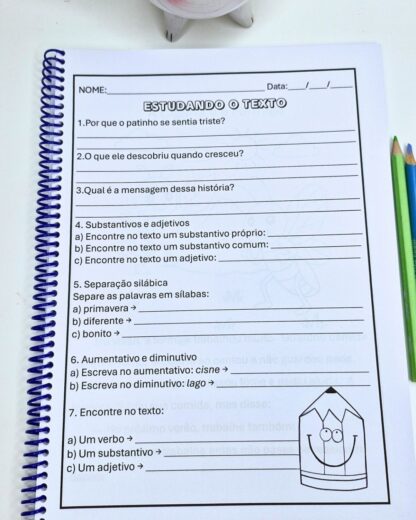 NOME:____________________________ Data:___/___/____
ESTUDANDO O TEXTO
1.Por que o patinho se sentia triste?
2.O que ele descobriu quando cresceu?
3.Qual é a mensagem dessa história?
4. Substantivos e adjetivos
a) Encontre no texto um substantivo próprio: ________________
b) Encontre no texto um substantivo comum: ________________
c) Encontre no texto um adjetivo: ________________
5. Separação silábica
Separe as palavras em sílabas:
a) primavera → ________________
b) diferente → ________________
c) bonito → ________________
6. Aumentativo e diminutivo
a) Escreva no aumentativo: cisne → ________________
b) Escreva no diminutivo: lago → ________________
7. Encontre no texto:
a) Um verbo → ________________
b) Um substantivo → ________________
c) Um adjetivo → ________________